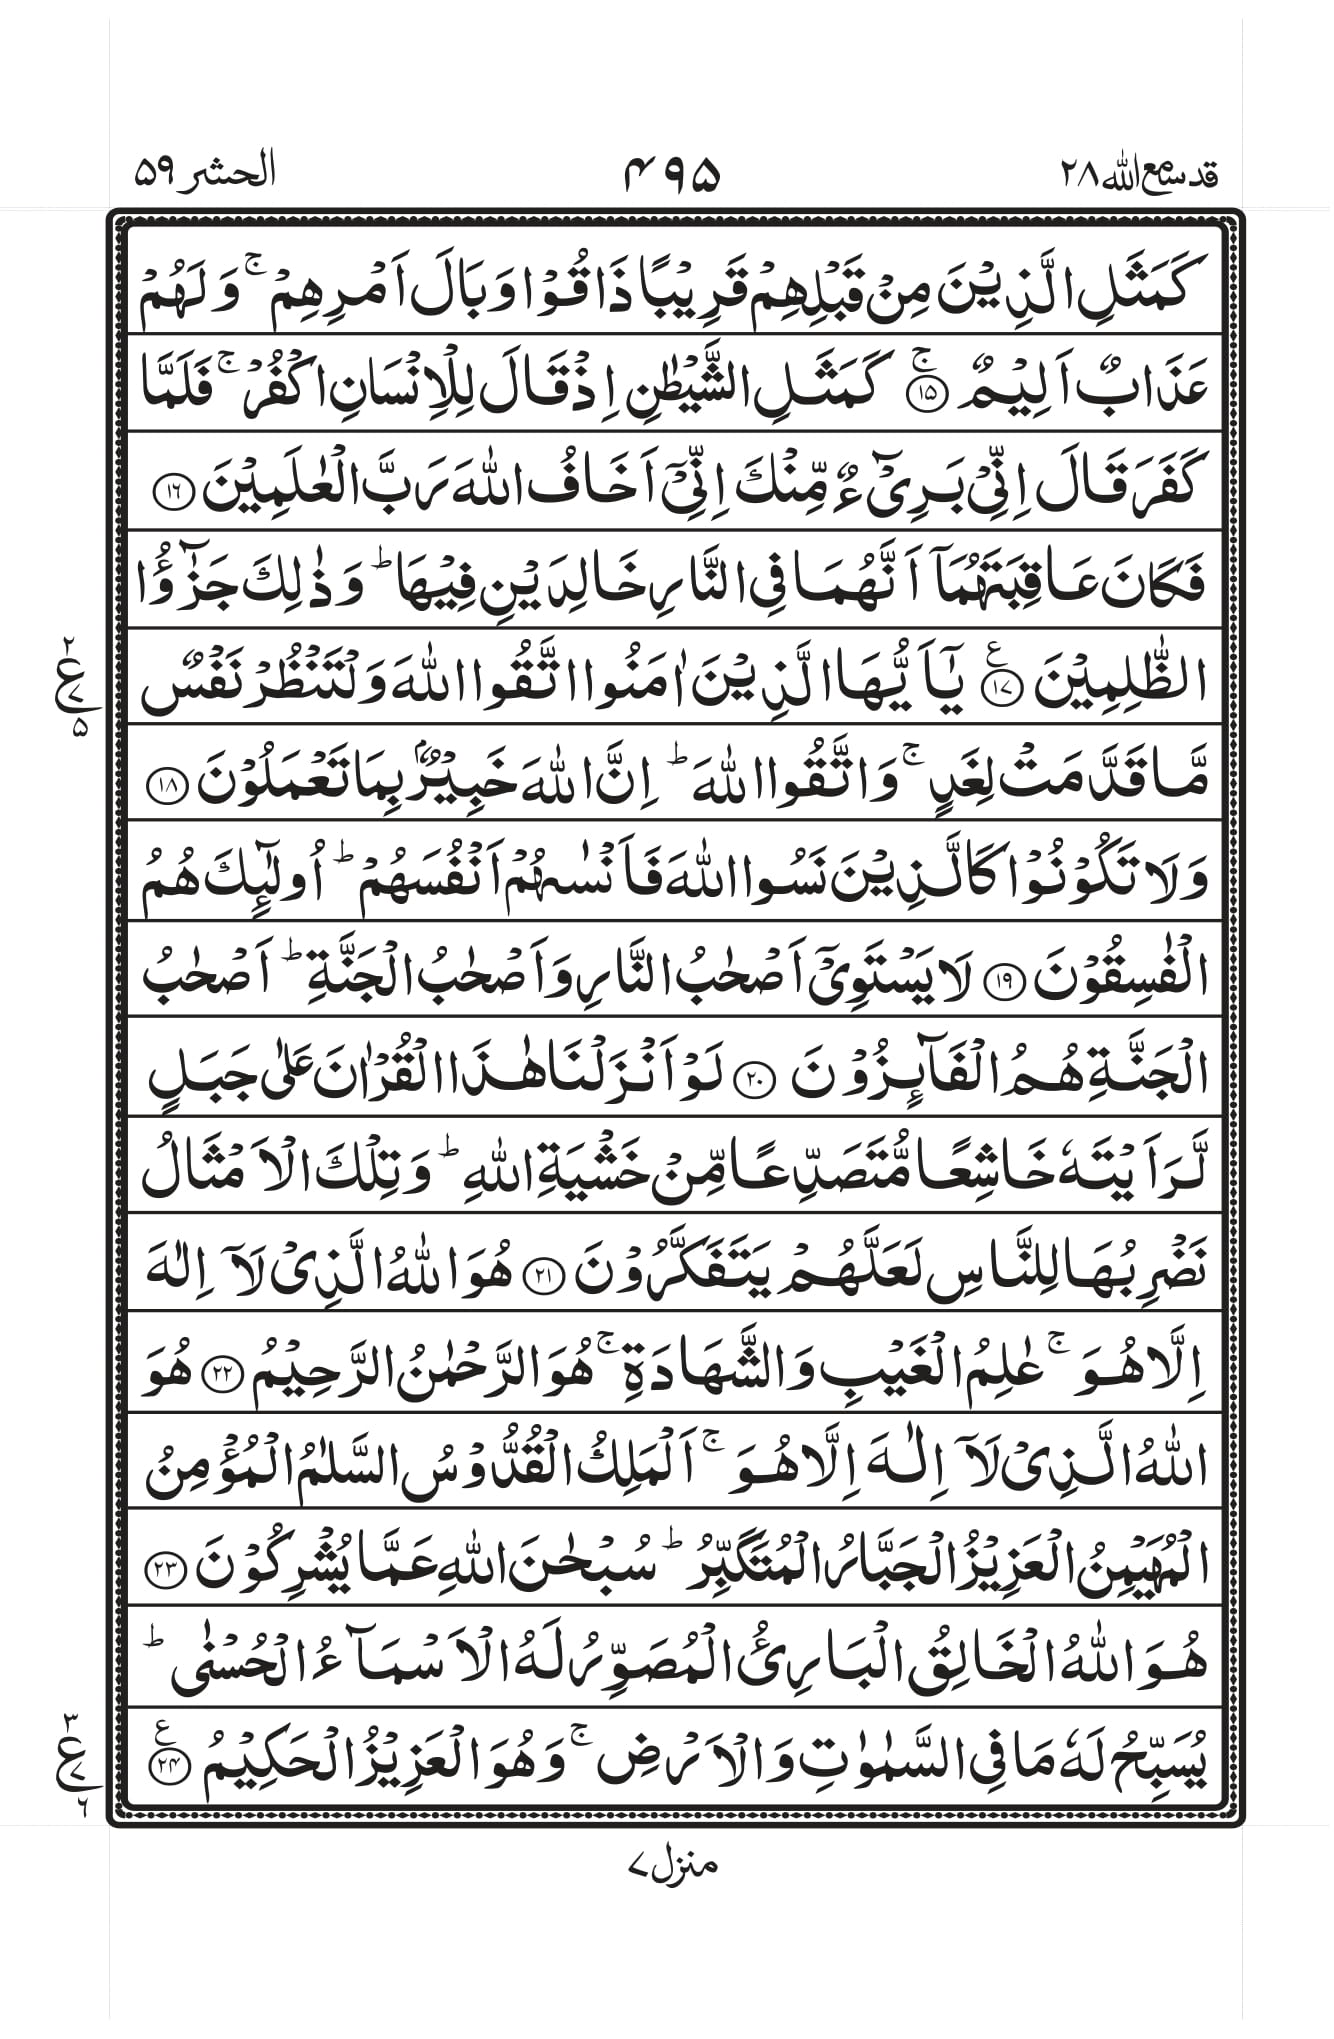 قد سمع الله ۲۸
۴۹۵
الحشر ۵۹
كَمَثَلِ الَّذِيْنَ مِنْ قَبْلِهِمْ قَرِيْبًا ذَاقُوْا وَبَالَ اَمْرِهِمْ ۚ وَلَهُمْ
عَذَابٌ اَلِيْمٌ ۚ ﴿۱۵﴾ كَمَثَلِ الشَّيْطٰنِ اِذْ قَالَ لِلْاِنْسَانِ اكْفُرْ ۚ فَلَمَّا
كَفَرَ قَالَ اِنِّيْ بَرِيْٓءٌ مِّنْكَ اِنِّيْٓ اَخَافُ اللّٰهَ رَبَّ الْعٰلَمِيْنَ ﴿۱۶﴾
فَكَانَ عَاقِبَتَهُمَآ اَنَّهُمَا فِي النَّارِ خَالِدَيْنِ فِيْهَا ؕ وَذٰلِكَ جَزٰٓؤُا
الظّٰلِمِيْنَ ﴿۱۷﴾ ع يٰٓاَيُّهَا الَّذِيْنَ اٰمَنُوا اتَّقُوا اللّٰهَ وَلْتَنْظُرْ نَفْسٌ
۲
ع
۷
۵
مَّا قَدَّمَتْ لِغَدٍ ۚ وَاتَّقُوا اللّٰهَ ؕ اِنَّ اللّٰهَ خَبِيْرٌۢ بِمَا تَعْمَلُوْنَ ﴿۱۸﴾
وَلَا تَكُوْنُوْا كَالَّذِيْنَ نَسُوا اللّٰهَ فَاَنْسٰىهُمْ اَنْفُسَهُمْ ؕ اُولٰٓئِكَ هُمُ
الْفٰسِقُوْنَ ﴿۱۹﴾ لَا يَسْتَوِيْٓ اَصْحٰبُ النَّارِ وَاَصْحٰبُ الْجَنَّةِ ؕ اَصْحٰبُ
الْجَنَّةِ هُمُ الْفَآئِزُوْنَ ﴿۲۰﴾ لَوْ اَنْزَلْنَا هٰذَا الْقُرْاٰنَ عَلٰى جَبَلٍ
لَّرَاَيْتَهٗ خَاشِعًا مُّتَصَدِّعًا مِّنْ خَشْيَةِ اللّٰهِ ؕ وَتِلْكَ الْاَمْثَالُ
نَضْرِبُهَا لِلنَّاسِ لَعَلَّهُمْ يَتَفَكَّرُوْنَ ﴿۲۱﴾ هُوَ اللّٰهُ الَّذِيْ لَآ اِلٰهَ
اِلَّا هُوَ ۚ عٰلِمُ الْغَيْبِ وَالشَّهَادَةِ ۚ هُوَ الرَّحْمٰنُ الرَّحِيْمُ ﴿۲۲﴾ هُوَ
اللّٰهُ الَّذِيْ لَآ اِلٰهَ اِلَّا هُوَ ۚ اَلْمَلِكُ الْقُدُّوْسُ السَّلٰمُ الْمُؤْمِنُ
الْمُهَيْمِنُ الْعَزِيْزُ الْجَبَّارُ الْمُتَكَبِّرُ ؕ سُبْحٰنَ اللّٰهِ عَمَّا يُشْرِكُوْنَ ﴿۲۳﴾
هُوَ اللّٰهُ الْخَالِقُ الْبَارِئُ الْمُصَوِّرُ لَهُ الْاَسْمَآءُ الْحُسْنٰى ؕ
يُسَبِّحُ لَهٗ مَا فِي السَّمٰوٰتِ وَالْاَرْضِ ۚ وَهُوَ الْعَزِيْزُ الْحَكِيْمُ ﴿۲۴﴾ ع
۳
ع
۷
۶
منزل ۷